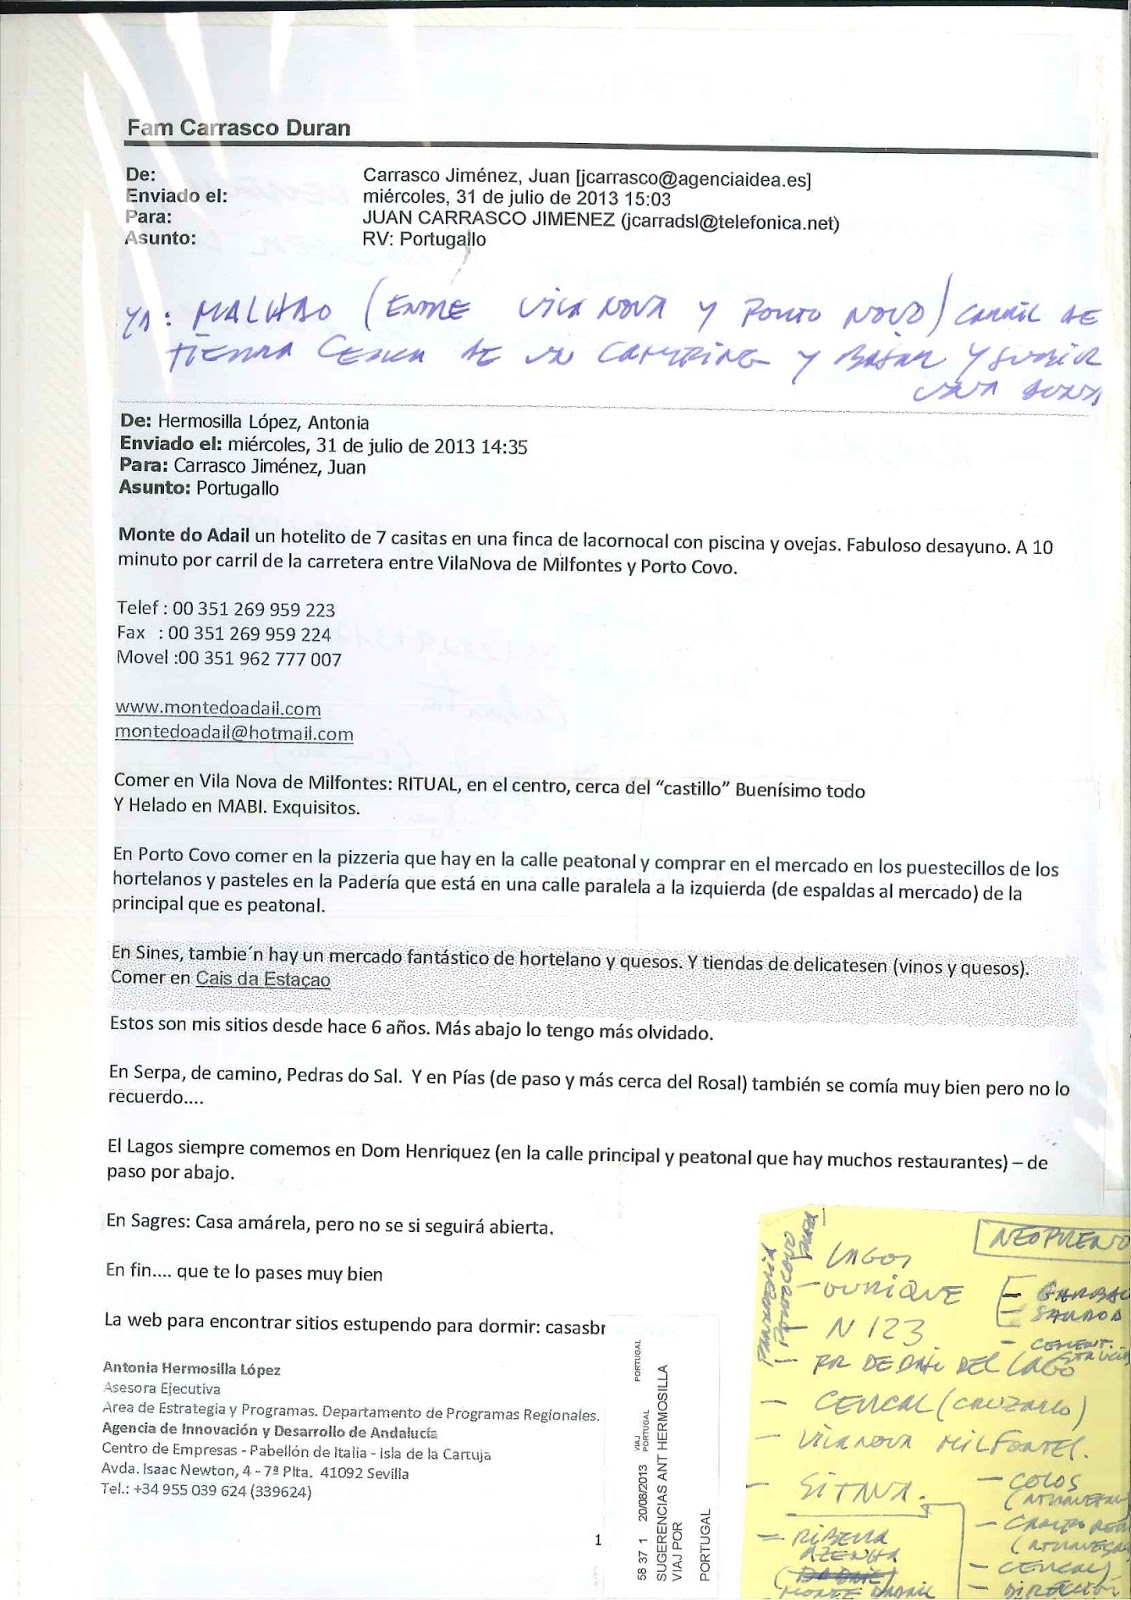 Fam Carrasco Duran
De: Carrasco Jiménez, Juan [jcarrasco@agenciaidea.es]
Enviado el: miércoles, 31 de julio de 2013 15:03
Para: JUAN CARRASCO JIMENEZ (jcarradsl@telefonica.net)
Asunto: RV: Portugallo
YA: MALHAO (ENTRE VILA NOVA Y PORTO NOVO) CARRIL DE
TIERRA CERCA DE UN CAMPING Y BAJAR Y SUBIR
UNA DUNA
De: Hermosilla López, Antonia
Enviado el: miércoles, 31 de julio de 2013 14:35
Para: Carrasco Jiménez, Juan
Asunto: Portugallo
Monte do Adail un hotelito de 7 casitas en una finca de lacornocal con piscina y ovejas. Fabuloso desayuno. A 10
minuto por carril de la carretera entre VilaNova de Milfontes y Porto Covo.
Telef : 00 351 269 959 223
Fax : 00 351 269 959 224
Movel :00 351 962 777 007
www.montedoadail.com
montedoadail@hotmail.com
Comer en Vila Nova de Milfontes: RITUAL, en el centro, cerca del “castillo” Buenísimo todo
Y Helado en MABI. Exquisitos.
En Porto Covo comer en la pizzeria que hay en la calle peatonal y comprar en el mercado en los puestecillos de los
hortelanos y pasteles en la Padería que está en una calle paralela a la izquierda (de espaldas al mercado) de la
principal que es peatonal.
En Sines, tambie´n hay un mercado fantástico de hortelano y quesos. Y tiendas de delicatesen (vinos y quesos).
Comer en Cais da Estaçao
Estos son mis sitios desde hace 6 años. Más abajo lo tengo más olvidado.
En Serpa, de camino, Pedras do Sal. Y en Pías (de paso y más cerca del Rosal) también se comía muy bien pero no lo
recuerdo....
El Lagos siempre comemos en Dom Henriquez (en la calle principal y peatonal que hay muchos restaurantes) – de
paso por abajo.
En Sagres: Casa amárela, pero no se si seguirá abierta.
En fin.... que te lo pases muy bien
La web para encontrar sitios estupendo para dormir: casasbr
Antonia Hermosilla López
Asesora Ejecutiva
Area de Estrategia y Programas. Departamento de Programas Regionales.
Agencia de Innovación y Desarrollo de Andalucía
Centro de Empresas - Pabellón de Italia - Isla de la Cartuja
Avda. Isaac Newton, 4 - 7ª Plta. 41092 Sevilla
Tel.: +34 955 039 624 (339624)
1
58 37 1 20/08/2013 VIAJ PORTUGAL PORTUGAL
SUGERENCIAS ANT HERMOSILLA
VIAJ POR
PORTUGAL
PORTOCOVO
NEOPRENO
LAGOS
- OURIQUE
- N 123
- POR DEBAJO DEL LAGO
- CERCAL (CRUZARLO)
- VILANOVA MILFONTES.
- SITAVA.
- RIBEIRA
AZENHA
- COLOS
- CERCAL)
- DIRECCION